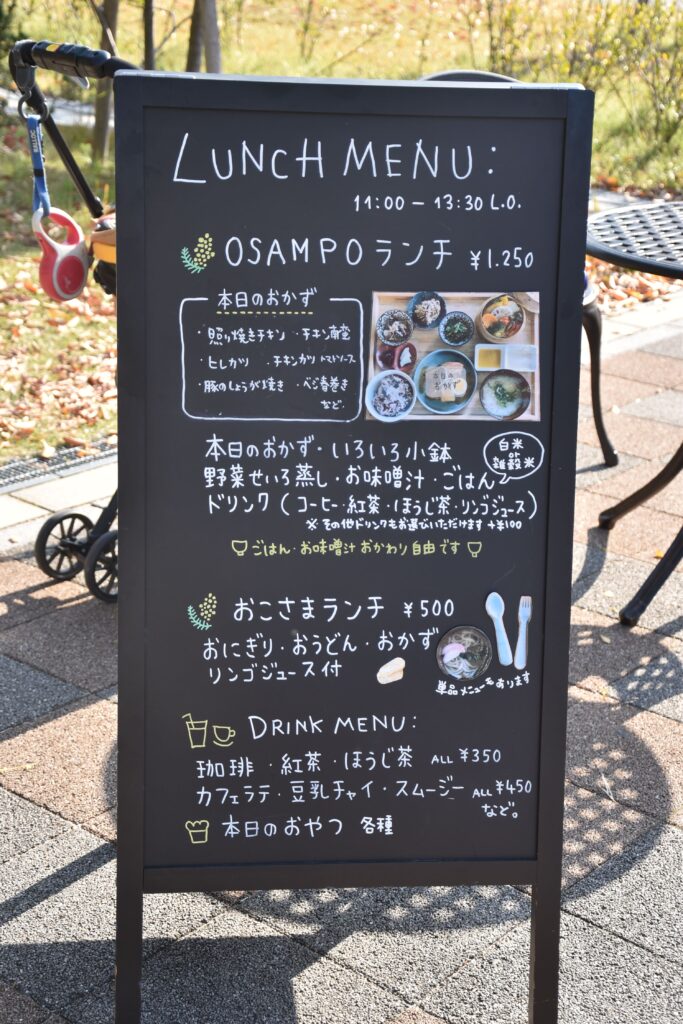 LUNCH MENU:
11:00 - 13:30 L.O.
OSAMPO ランチ ¥1.250
本日のおかず
・照り焼きチキン ・チキン南蛮
・ヒレカツ ・チキンカツ トマトソース
・豚のしょうが焼き ・ベジ春巻き
など
本日の
おかず
本日のおかず・いろいろ小鉢
白米
or
雑穀米
野菜せいろ蒸し・お味噌汁・ごはん
ドリンク (コーヒー・紅茶・ほうじ茶・リンゴジュース)
※その他ドリンクもお選びいただけます +¥100
ごはん・お味噌汁 おかわり自由です
おこさまランチ ¥500
おにぎり・おうどん・おかず
リンゴジュース付
単品メニューもあります
DRINK MENU:
珈琲・紅茶・ほうじ茶 ALL ¥350
カフェラテ・豆乳チャイ・スムージー ALL ¥450
など。
本日のおやつ 各種